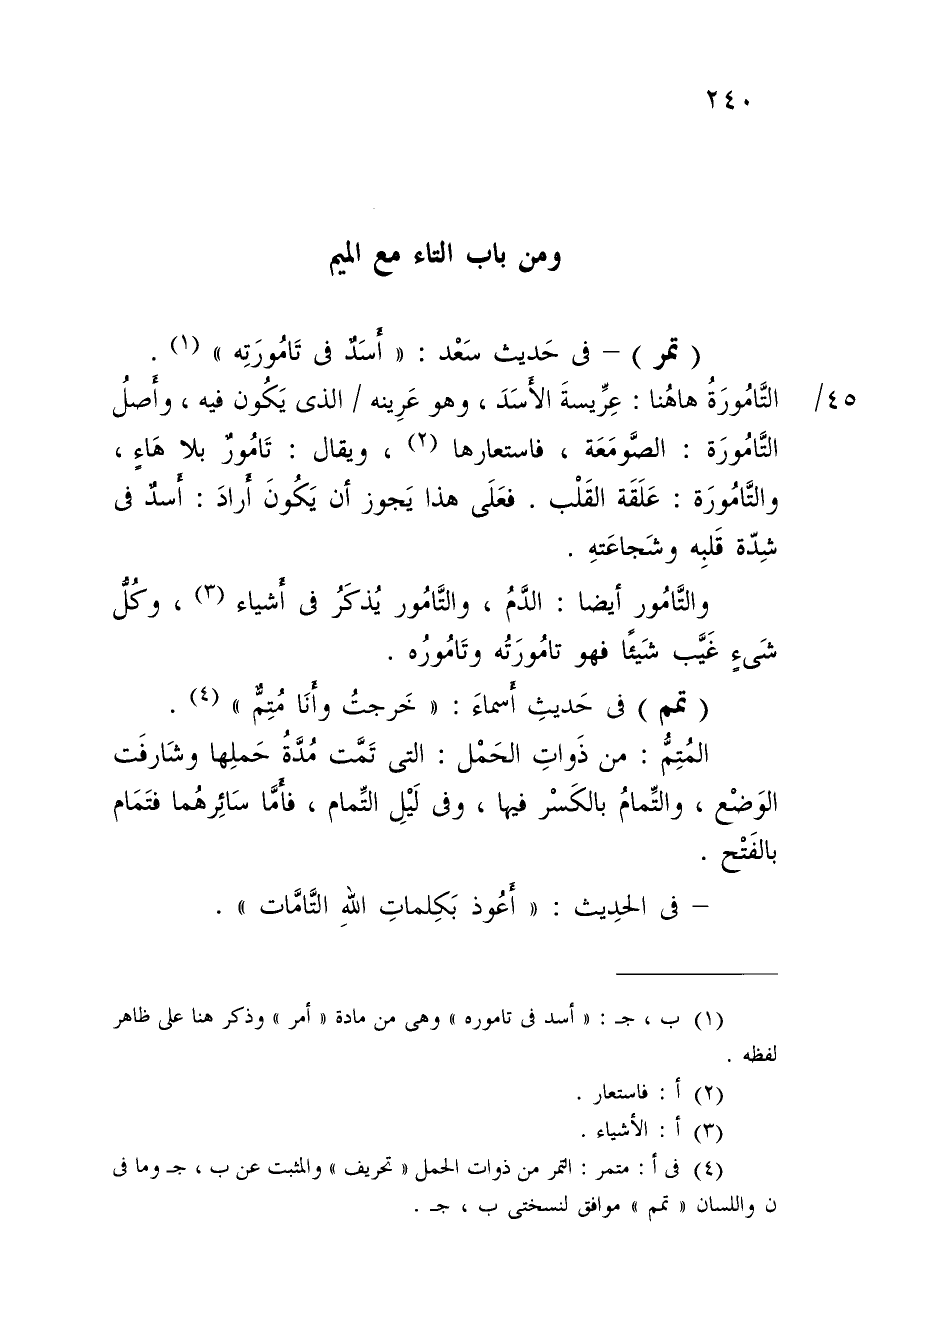 ٢٤٠
ومن باب التاء مع الميم
( تمر ) – فى حَديث سَعْد : « أَسَدٌ فى تَامُورَتِه » (١) .
التَّامُورَةُ هاهُنا : عِرِّيسةَ الأَسَدَ ، وهو عَرِينه / الذى يَكُون فيه ، وأَصلُ ٤٥/
التَّامُورَة : الصَّومَعَة ، فاستعارها (٢) ، ويقال : تَامُورٌ بلا هَاءٍ ،
والتَّامُورَة : عَلَقَة القَلْب . فعَلَى هذا يَجوز أن يَكُونَ أَرادَ : أَسدٌ فى
شِدّة قَلبِه وشَجاعَتهِ .
والتَّامُور أيضا : الدَّمُ ، والتَّامُور يُذكَرُ فى أَشياء (٣) ، وكُلُّ
شَىءٍ غَيَّب شَيئًا فهو تامُورَتُه وتَامُورُه .
( تمم ) فى حَديثِ أَسماءَ : « خَرجتُ وأَنَا مُتِمٌّ » (٤) .
المُتِمُّ : من ذَواتِ الحَمْل : التى تَمَّت مُدَّةُ حَملِها وشَارفَت
الوَضْع ، والتِّمامُ بالكَسْر فيها ، وفى لَيْلِ التِّمام ، فأَمَّا سَائِرهُما فتَمَام
بالفَتْح .
– فى الحَدِيث : « أَعُوذ بَكِلماتِ اللهِ التَّامَّات » .
(١) ب ، جـ : « أسد فى تاموره » وهى من مادة « أمر » وذكر هنا على ظاهر
لفظه .
(٢) أ : فاستعار .
(٣) أ : الأشياء .
(٤) فى أ : متمر : التمر من ذوات الحمل « تحريف » والمثبت عن ب ، جـ وما فى
ن واللسان « تمم » موافق لنسختى ب ، جـ .